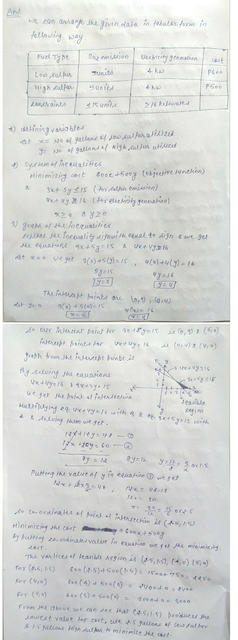 Ans
we can arrange the given data in tabular form in
following way
Fuel Type | So2 emission | Electricity generation | cost
Low sulfur | 3 units | 4 kw | P600
High sulfur | 5 units | 4 kw | P500
constraints | ≤ 15 units | ≥ 16 kilowatts
Defining variables
Let x = No of gallons of low sulfur utilized
y = No of gallons of high sulfur utilized
System of inequalities
Minimizing cost 600x+500y (objective function)
3x+5y ≤ 15 (for sulfur emission)
4x+4y ≥ 16 (for electricity generation)
x ≥ 0 & y ≥ 0
graph of the inequalities
replace the inequality sign with equal to sign & we get
the equations 3x+5y=15 & 4x+4y=16
At x=0 we get 3(0)+5(y)=15, 4(0)+4(y)=16
5y=15 4y=16
y=3 y=4
The intercept points are (0,3) & (0,4)
At y=0 3(x)+5(0)=15
So our intercept point for 3x+5y=15 is (0,3) & (5,0)
intercept point for 4x+4y=16 is (0,4) & (4,0)
graph from the intercept points is
4x+4y=16
3x+5y=15
feasible
region
By solving the equations
4x+4y=16 & 3x+5y=15
we get the point of intersection
12x+12y=48 —①
12x+20y=60 —②
8y=12
Putting the value of y in equation ① we get
So co-ordinates of point of intersection is (2.5,1.5)
Minimizing the cost 600x+500y
by putting co-ordinates value in equation we get the minimizing
cost.
The vertices of feasible region is (2.5,1.5), (4,0) (5,0)
for (2.5,1.5) 600(2.5)+500(1.5) = 1500+750 = 2250
for (4,0) 600(4)+500(0) = 2400+0 = 2400
for (5,0) 600(5)+500(0) = 3000+0 = 3000
From the above we can see that (2.5,1.5) produces the
lowest value for cost, use 2.5 gallons of low sulfur
& 1.5 gallons high sulfur to minimize the cost.